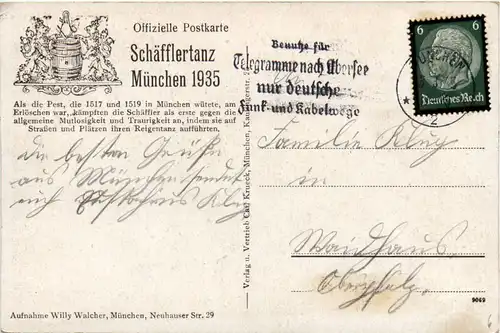 Offizielle Postkarte
Schäfflertanz
München 1935
Als die Pest, die 1517 und 1519 in München wütete, am
Erlöschen war, kämpften die Schäffler als erste gegen die
allgemeine Mutlosigkeit und Traurigkeit an, indem sie auf
Straßen und Plätzen ihren Reigentanz aufführten.
Benutze für
Telegramme nach Übersee
nur deutsche
Funk- und Kabelwege
6
Deutsches Reich
2
die besten Grüße
aus München sendet
euch Klug
Familie Klug
in
Waidhaus
Oberpfalz.
Verlag u. Vertrieb Carl Krueck, München,
9069
Aufnahme Willy Walcher, München, Neuhauser Str. 29